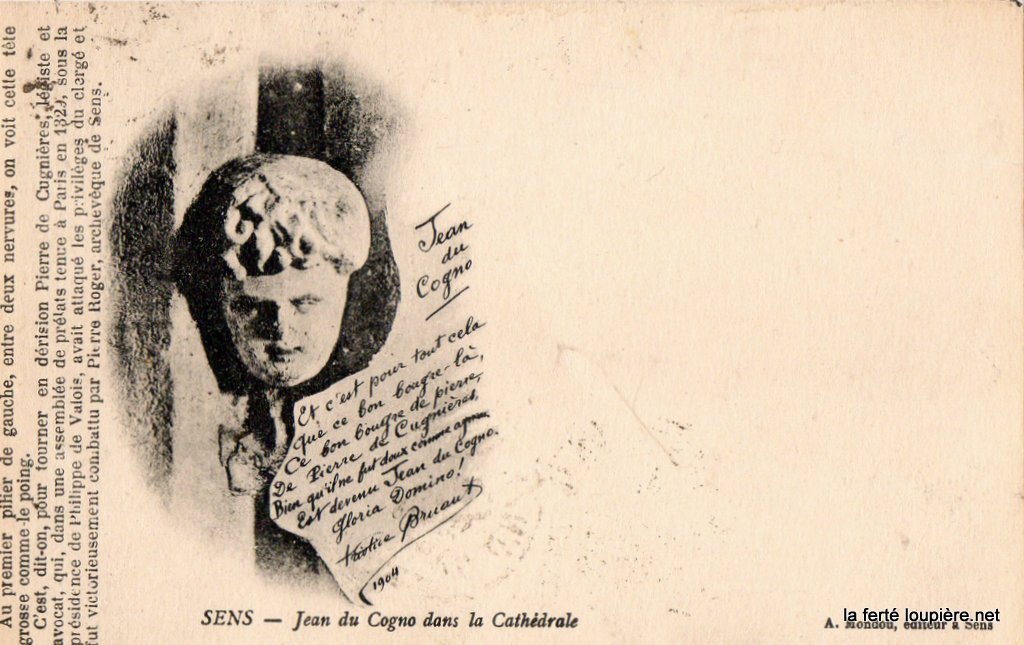 Au premier pilier de gauche, entre deux nervures, on voit cette tête
grosse comme le poing.
C'est, dit-on, pour tourner en dérision Pierre de Cugnières, légiste et
avocat, qui, dans une assemblée de prélats tenue à Paris en 1329, sous la
présidence de Philippe de Valois, avait attaqué les privilèges du clergé et
fut victorieusement combattu par Pierre Roger, archevêque de Sens.
Jean
du
Cogno
Et c'est pour tout cela
Que ce bon bougre-là,
Ce bon bougre de pierre,
De Pierre de Cugnières,
Bien qu'il ne fut doux comme agneau
Est devenu Jean du Cogno.
Gloria Domino!
Aristide Bruant
1904
SENS — Jean du Cogno dans la Cathédrale
A. Mondou, éditeur à Sens
la ferté loupière.net